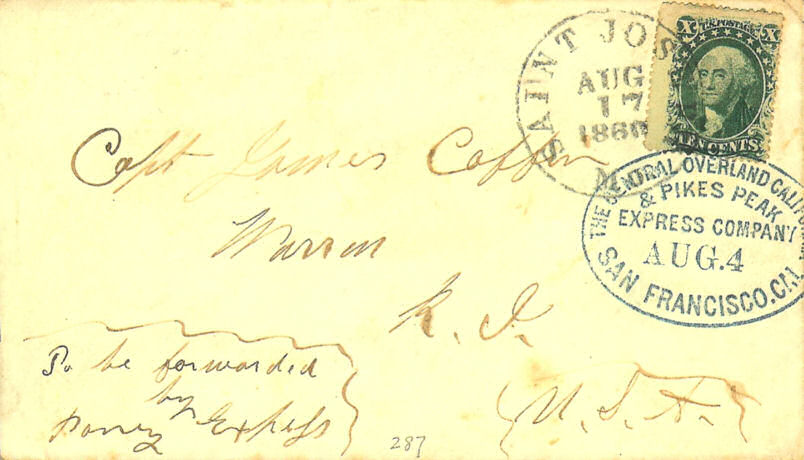 SAINT JOS
AUG
17
1860
MO.
X U.S. POSTAGE. X
TEN CENTS
THE CENTRAL OVERLAND CALIFORNIA
& PIKES PEAK
EXPRESS COMPANY
AUG. 4
SAN FRANCISCO, CAL
Capt James Coffin
Warren
R. I.
U. S. A.
To be forwarded
by
Poney Express
287